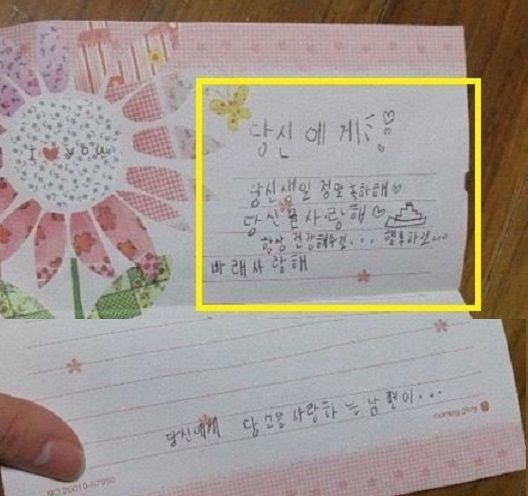 I ♥ you
당신에게
당신생일 정말 축하해♡
당신을 사랑해♡
항상 건강해주길... 행복하길...
바래사랑해
당신에게 당신을 사랑하는 남편이...
morning glory
NO.20010-57950